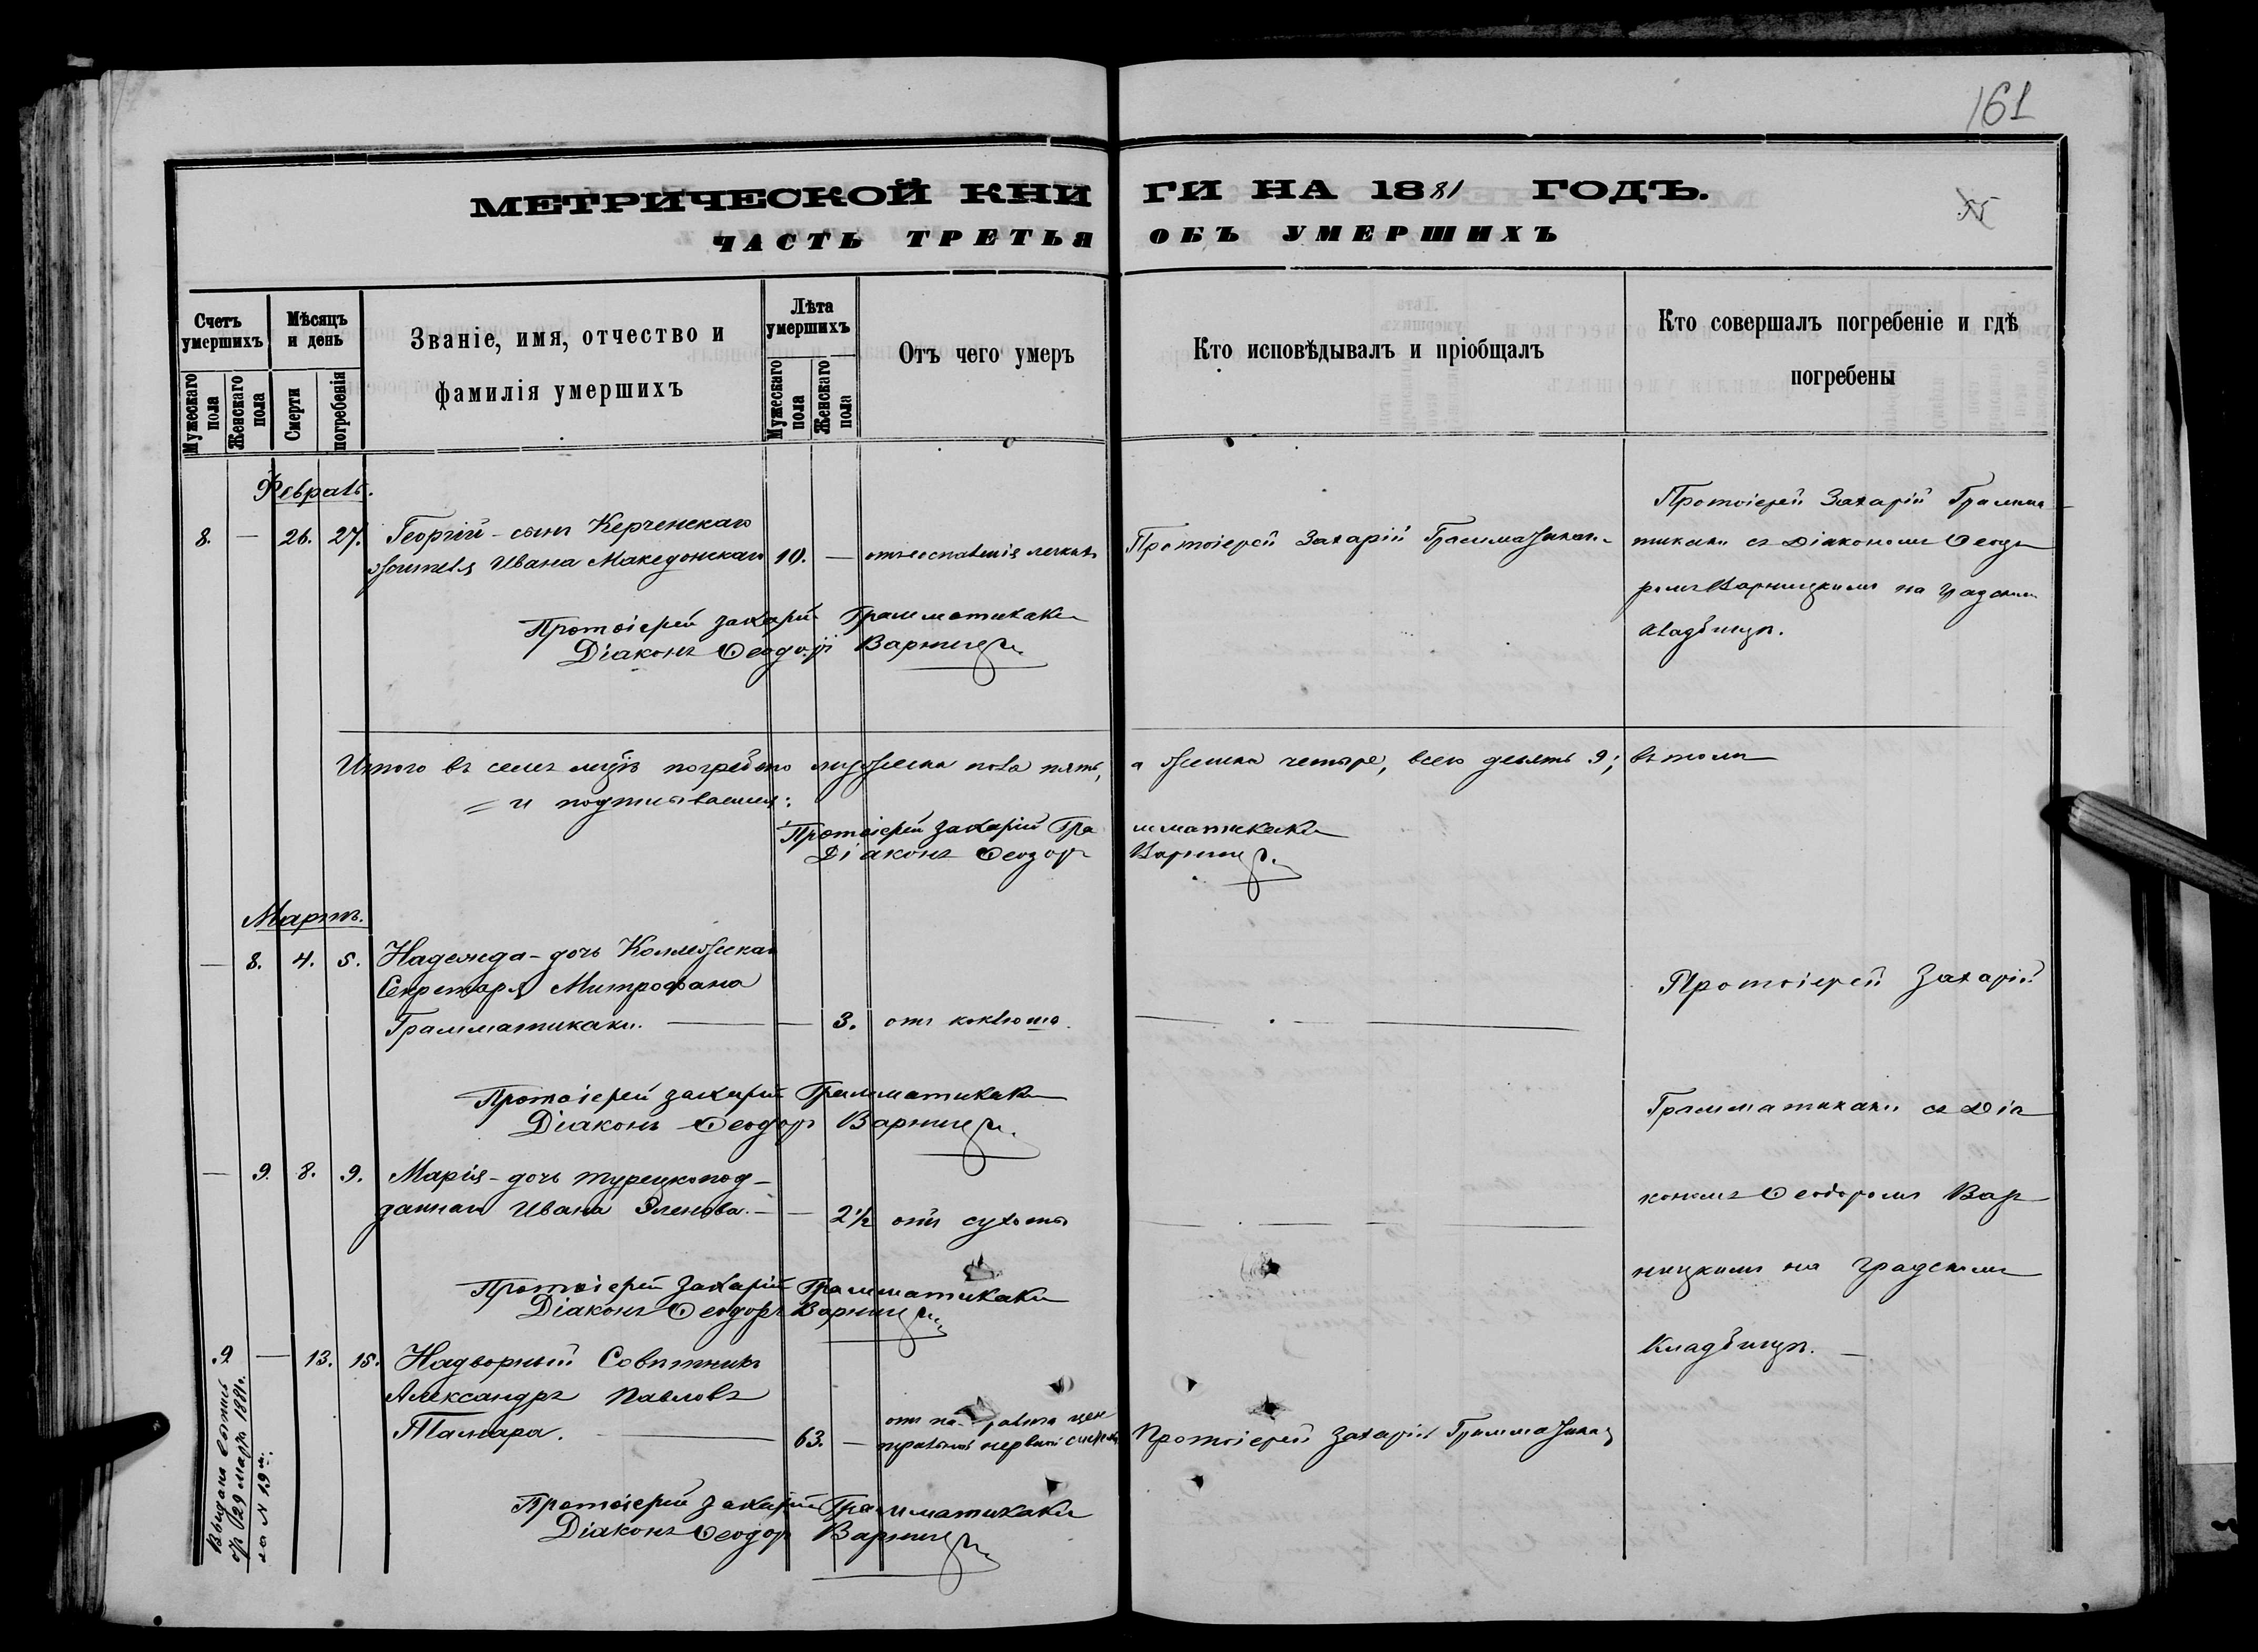 161
МЕТРИЧЕСКОЙ КНИГИ НА 1881 ГОДЪ.
ЧАСТЬ ТРЕТЬЯ ОБЪ УМЕРШИХЪ
Счетъ умершихъ
Мужескаго пола
Женскаго пола
Мѣсяцъ и день
Смерти
погребенія
Званіе, имя, отчество и
фамилія умершихъ
Лѣта умершихъ
Мужескаго пола
Женскаго пола
Отъ чего умеръ
Кто исповѣдывалъ и пріобщалъ
Кто совершалъ погребеніе и гдѣ
погребены
Февраль.
8. — 26. 27. Георгій - сынъ Керченскаго
жителя Ивана Македонскаго 10. — отъ воспаленія легкихъ
Протоіерей Захарій Грамматикаки
Протоіерей Захарій Грамма
тикаки съ Діакономъ Ѳеодо
ромъ Варницкимъ на градскомъ
кладбищѣ.
Протоіерей Захарій Грамматикаки
Діаконъ Ѳеодоръ Варницкі
Итого въ семъ мѣсяцѣ погребено мужеска пола пять, а женска четыре, всего девять 9; въ томъ
и подписываемся:
Протоіерей Захарій Грамматикаки
Діаконъ Ѳеодоръ Варницкі
Мартъ.
— 8. 4. 5. Надежда - дочь Коллежскаго
Секретаря Митрофана
Грамматикаки. — 3. отъ коклюша
Протоіерей Захарій
Протоіерей Захарій Грамматикаки
Діаконъ Ѳеодоръ Варницкі
Грамматикаки съ Діа
— 9. 8. 9. Марія - дочь турецкопод-
даннаго Ивана — 2½ отъ сухоты
кономъ Ѳеодоромъ Вар
ницкимъ на градскомъ
Протоіерей Захарій Грамматикаки
Діаконъ Ѳеодоръ Варницкі
кладбищѣ. —
9 — 13. 15. Надворный Совѣтникъ
Александръ Павловъ
Тамара. 63. — отъ паралича цен
тральной нервной системы
Протоіерей Захарій Грамматикаки
Протоіерей Захарій Грамматикаки
Діаконъ Ѳеодоръ Варницкі
Выдана выпись
29 марта 1881 г.
за N 19 м.